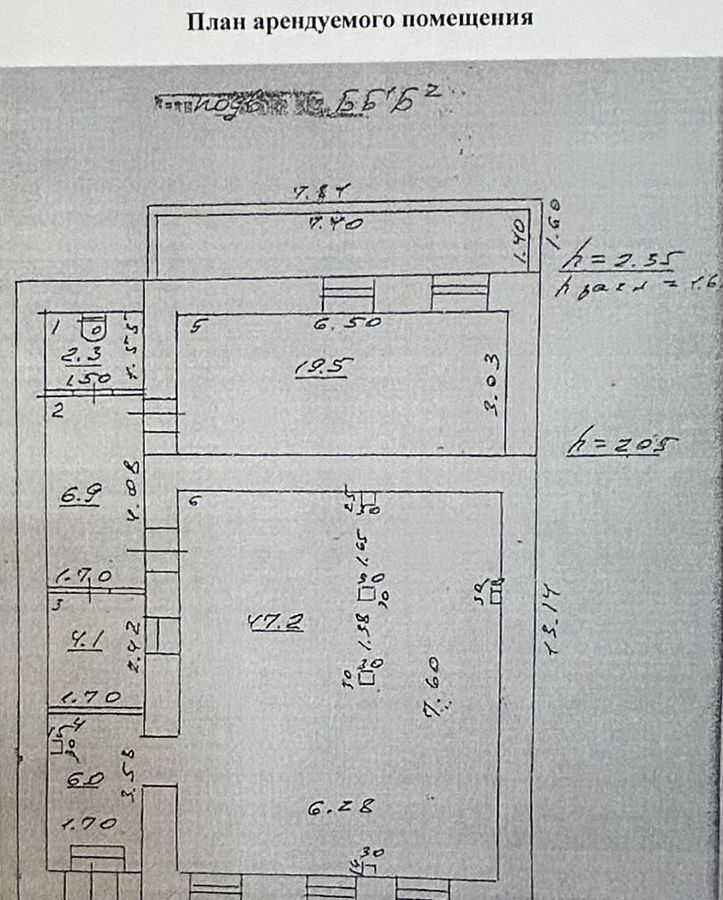 План арендуемого помещения
ББ'Б²
7.81
7.40
1.40
1.60
h=2.35
h=205
1
2.3
1.50
1.55
5
6.50
19.5
3.03
2
6.9
4.08
1.70
3
4.1
2.42
1.70
4
15
30
6.0
3.58
1.70
6
25
30
1.65
30
30
47.2
1.38
30
30
30
7.60
6.28
30
13.14